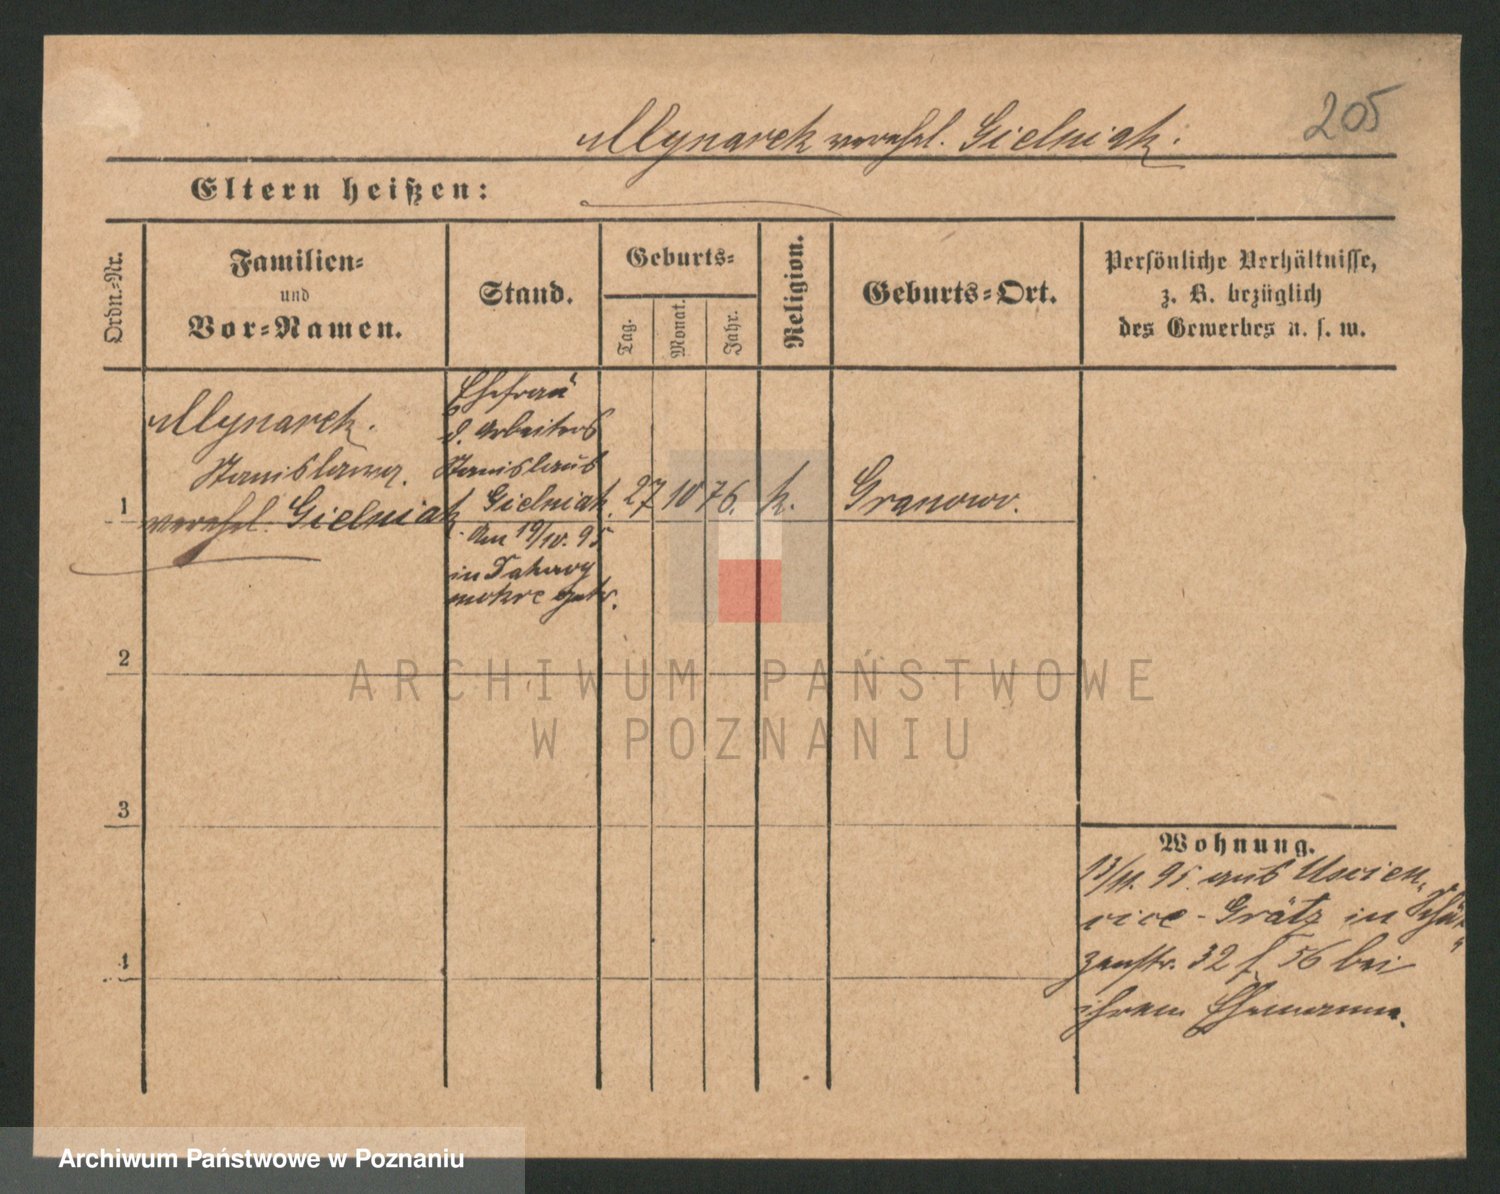 205
Mlynarek verehel. Gielniak.
Eltern heißen:
Ordn.-Nr.
Familien-
und
Vor-Namen.
Stand.
Geburts-
Tag.
Monat.
Jahr.
Religion.
Geburts-Ort.
Persönliche Verhältnisse,
z. B. bezüglich
des Gewerbes u. s. w.
1
Mlynarek.
Stanislawa.
verehel. Gielniak
Ehefrau
d. Arbeiters
Stanislaus
Gielniak.
Am 19/10. 95
in
mokre getr.
27
10
76.
k.
Granowo.
2
3
4
Wohnung.
13/11. 95. aus
- Grätz in Schüt-
zenstr. 32 f. 56 bei
ihrem Ehemanne.
ARCHIWUM PAŃSTWOWE
W POZNANIU
Archiwum Państwowe w Poznaniu